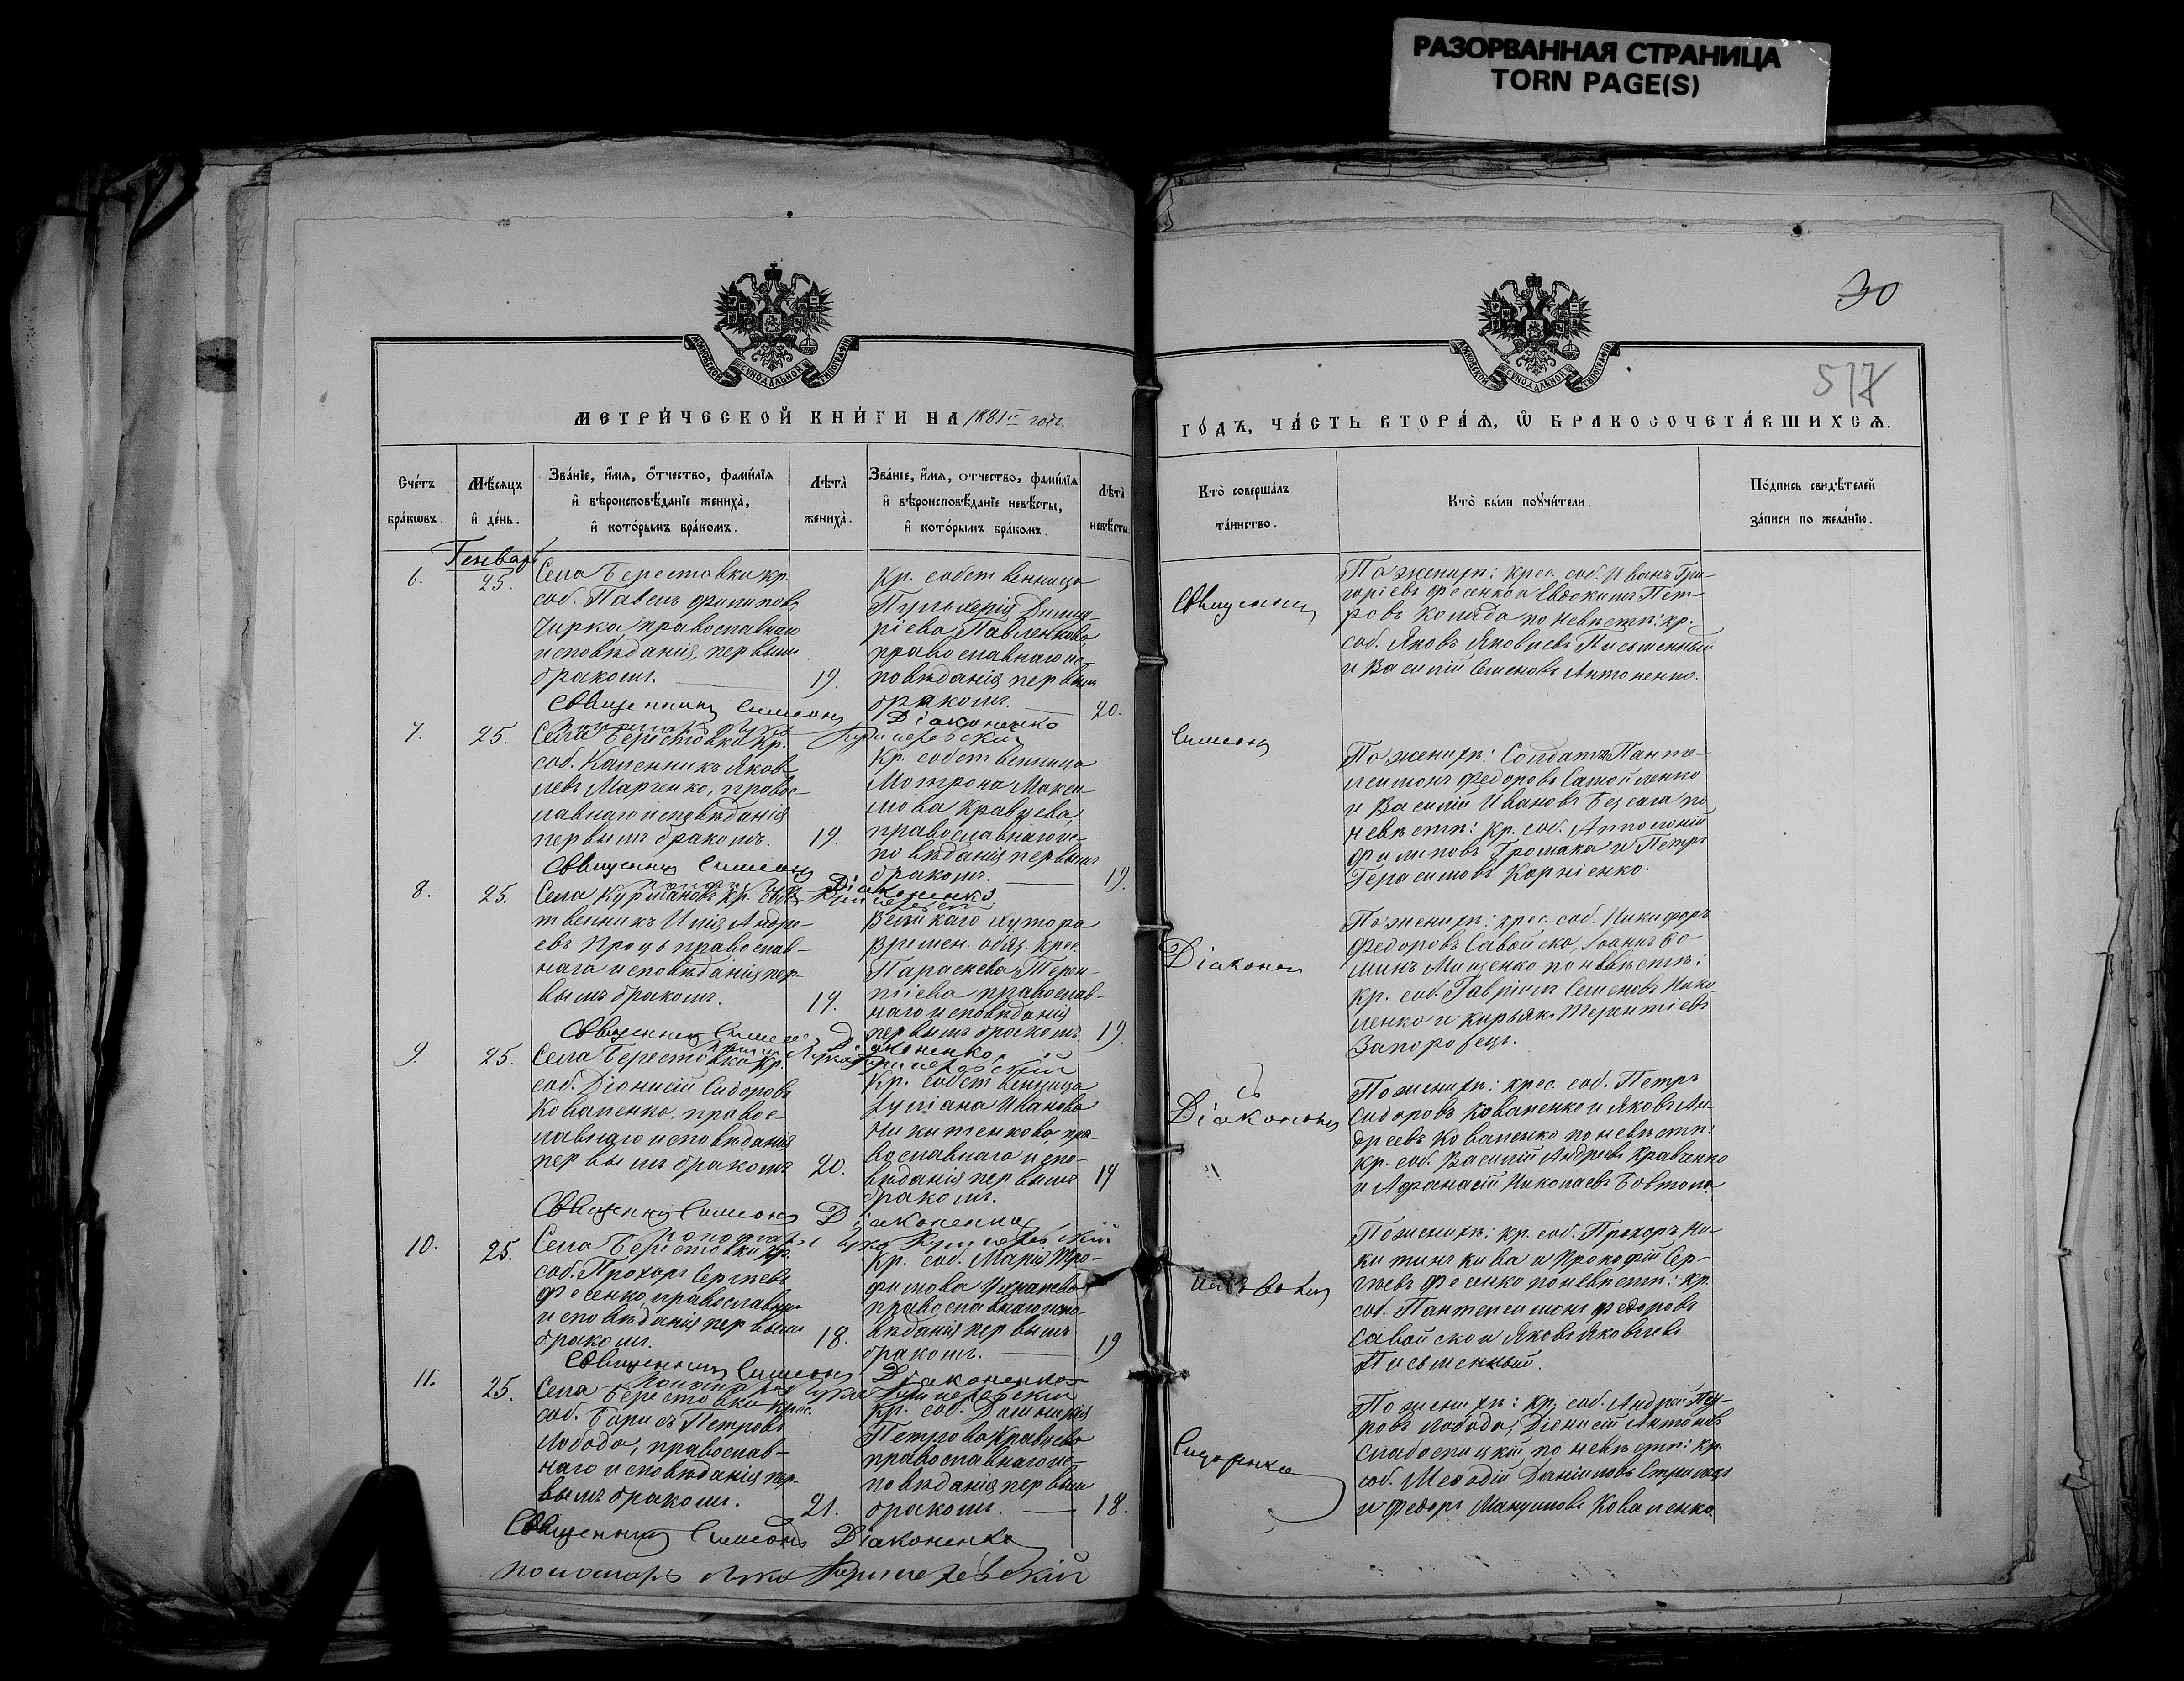 РАЗОРВАННАЯ СТРАНИЦА
TORN PAGE(S)
30
517
МОСКОВСКОЙ СѴНОДАЛЬНОЙ ТИПОГРАФІИ
МОСКОВСКОЙ СѴНОДАЛЬНОЙ ТИПОГРАФІИ
МЕТРИ́ЧЕСКОЙ КНИ́ГИ НА 1881й годъ
ГО́ДЪ, ЧА́СТЬ ВТОРА́Ѧ, Ѽ БРАКОСОЧЕТА́ВШИХСѦ.
Сче́тъ
бра́кѡвъ.
Мѣ́сяцъ
и҆ де́нь.
Зва́нїе, и҆́мя, о҆́тчество, фами́лїя
и҆ вѣроисповѣ́данїе жениха̀,
и҆ кото́рымъ бра́комъ.
Лѣта̀
жениха̀.
Зва́нїе, и҆́мя, отчество, фами́лїя
и҆ вѣроисповѣ́данїе невѣ́сты,
и҆ кото́рымъ бра́комъ.
Лѣта̀
невѣ́сты.
Кто̀ соверша́лъ
та́инство.
Кто̀ бы́ли пору́чи́тели.
По́дпись свидѣ́телей
за́писи по жела́нїю.
Генварь
6.
25.
Села Берестовки кр.
соб. Павелъ Филиповъ
Чирка, православнаго
исповѣданія, первымъ
бракомъ.
19.
Кр. собственница
Пульхерія Димит-
ріева Павленкова,
православнаго ис-
повѣданія первымъ
бракомъ.
20.
Священникъ Симеонъ Діаконенко
Священникъ
По женихѣ: крес. соб. Иванъ Гри-
горіевъ Фесенко и Евдокимъ Пет-
ровъ Коляда по невѣстѣ: кр.
соб. Яковъ Яковлевъ Письменный
и Василій Семеновъ Антоненко.
7.
25.
Села Берестовки кр.
соб. Каленникъ Яков-
левъ Марченко, правос-
лавнаго исповѣданія
первымъ бракомъ.
19.
Кр. собственница
Мотрона Макси-
мова Кравцева,
православнаго ис-
повѣданія первымъ
бракомъ.
19.
Священникъ Симеонъ Діаконенко
Симеонъ
По женихѣ: Солдатъ Панте-
леимонъ Федоровъ Самойленко
и Василій Ивановъ по
невѣстѣ: кр. соб. Апполоній
Филиповъ Громака и Петръ
Герасимовъ Корніенко.
8.
25.
Села Курмановъ кр. собс-
твенникъ Илія Андре-
евъ Проць православ-
наго исповѣданія пер-
вымъ бракомъ.
19.
Великаго хутора
Времен. обяз. крес.
Параскева Терен-
тіева православ-
наго исповѣданія
первымъ бракомъ
19.
Священникъ Симеонъ Діаконенко
Діаконен
По женихѣ: крес. соб. Никифоръ
Федоровъ Савойско, Іоаннъ Ко-
минъ Мищенко по невѣстѣ:
кр. соб. Гавріилъ Семеновъ Нико-
ленко и Кирьякъ Терентіевъ
Запорожецъ.
9.
25.
Села Берестовки кр.
соб. Діонисій Сидоровъ
Коваленко, правос-
лавнаго исповѣданія
первымъ бракомъ
20.
Кр. собственница
Іуліана Иванова
Никитенкова, пра-
вославнаго испо-
вѣданія первымъ
бракомъ.
19
Священникъ Симеонъ Діаконенко
Діаконъ
По женихѣ: крес. соб. Петръ
Сидоровъ Коваленко и Яковъ Ан-
дреевъ Коваленко по невѣстѣ:
кр. соб. Василій Андреевъ Кравченко
и Афанасій Николаевъ Бовтопа.
10.
25.
Села Берестовки кр.
соб. Прохоръ Сергѣевъ
Фесенко, православнаго
исповѣданія первымъ
бракомъ.
18.
Кр. соб. Марія Тро-
фимова
православнаго испо-
вѣданія первымъ
бракомъ.
19
Священникъ Симеонъ Діаконенко
По женихѣ: кр. соб. Прохоръ Ни-
китинъ Кива и Прокофій Сер-
гѣевъ Фесенко по невѣстѣ: кр.
соб. Пантелеимонъ Федоровъ
Савойско и Яковъ Яковлевъ
Письменный.
11.
25.
Села Берестовки крес.
соб. Борисъ Петровъ
Лобода, православ-
наго исповѣданія пер-
вымъ бракомъ.
21.
Кр. соб. Домникія
Петрова Кравцева
православнаго ис-
повѣданія первымъ
бракомъ.
18.
Сидоренко
По женихѣ: кр. соб. Андрей Пет-
ровъ Лобода, Діонисій Антоновъ
Слабоспицкій по невѣстѣ: кр.
соб. Мефодій Даніиловъ Стрижакъ
и Федоръ Мануиловъ Коваленко.
Священникъ Симеонъ Діаконенко
пономарь Лука